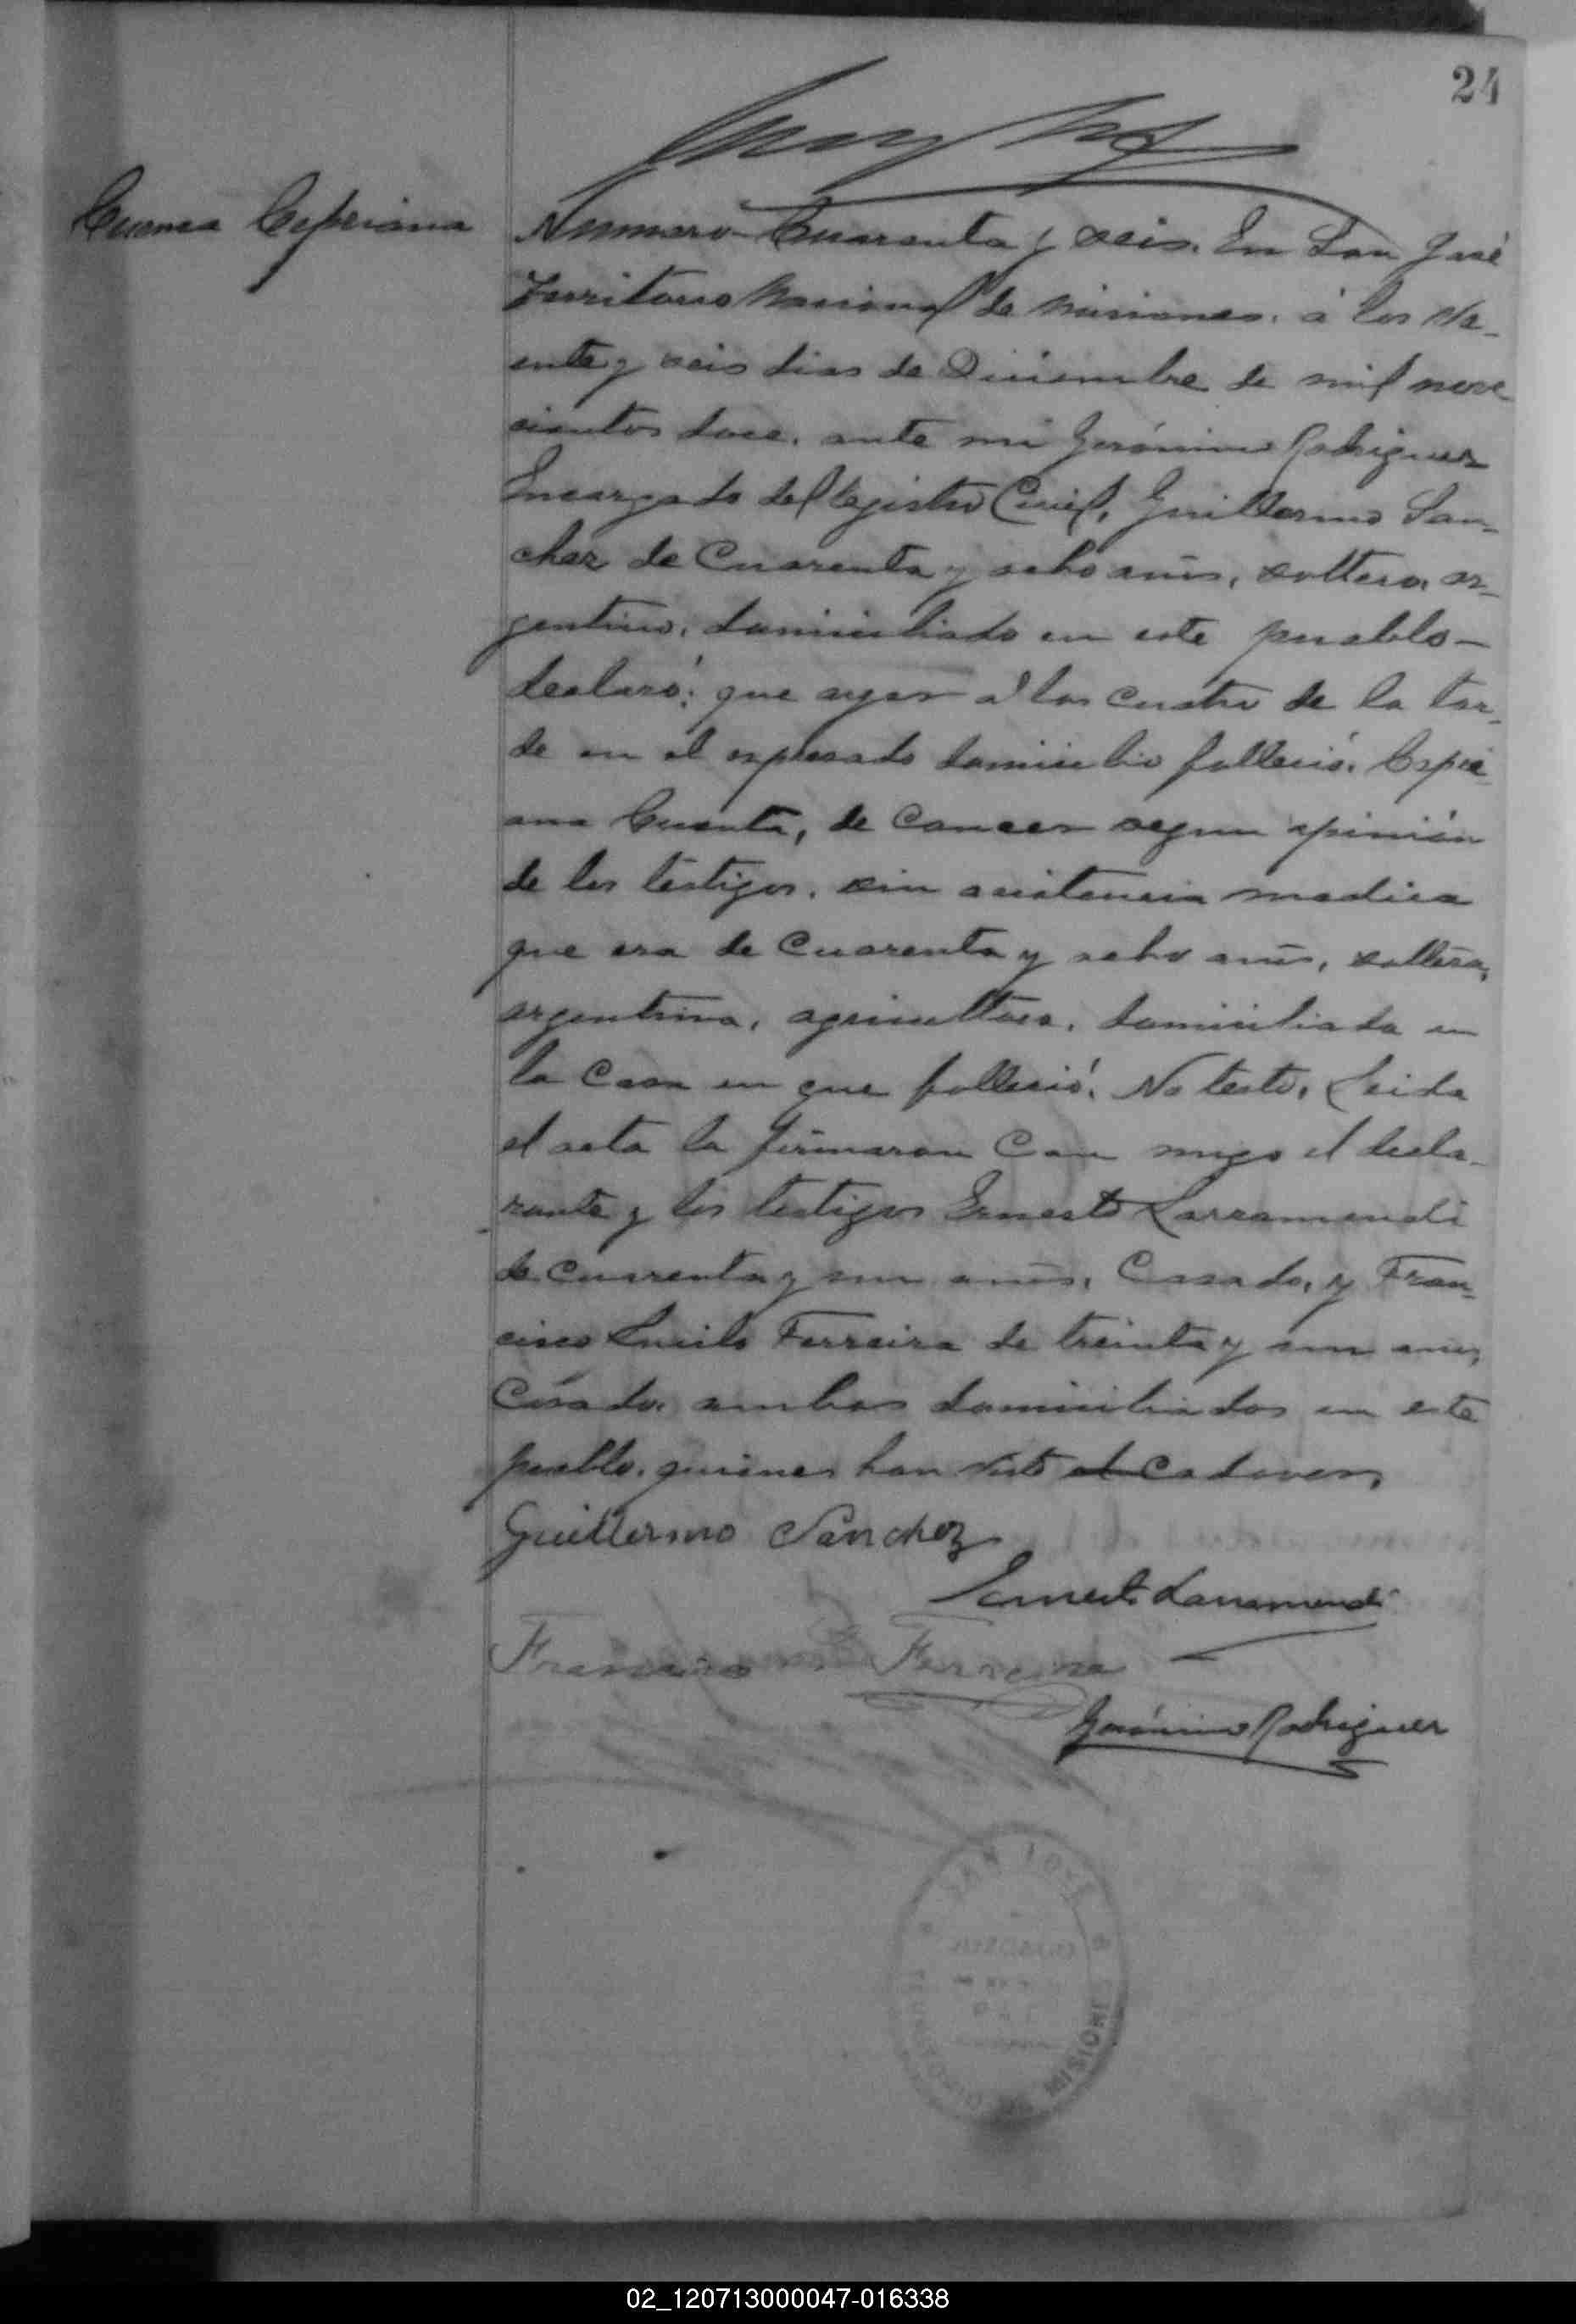 24
Cipriana
Numero Cuarenta y seis. En San José
Territorio Nacional de Misiones, á los ve-
inte y seis dias de Diciembre de mil nove
cientos doce, ante mi Gerónimo Rodriguez
Encargado del Registro Civil, Guillermo San-
chez de Cuarenta y ocho años, soltero, ar-
gentino, domiciliado en este pueblo—
declaró: que ayer á las cuatro de la tar-
de en el espresado domicilio falleció. Cipri
ana de Cancer segun opinión
de los testigos, sin asistencia medica
que era de Cuarenta y ocho años, soltera,
argentina, agricultora, domiciliada en
la Casa en que falleció. No testó. Leida
el acta la firmaron Con migo el decla-
rante y los testigos Ernesto Larramendi
de cuarenta y un años, Casado, y Fran-
cisco Lucilo Ferreira de treinta y un años,
Casado, ambos domiciliados en este
pueblo, quienes han visto el Cadaver.
Guillermo Sanchez
Ernesto Larramendi
Francisco Ferreira
Gerónimo Rodriguez
SAN JOSE
MISIONE
02_120713000047-016338